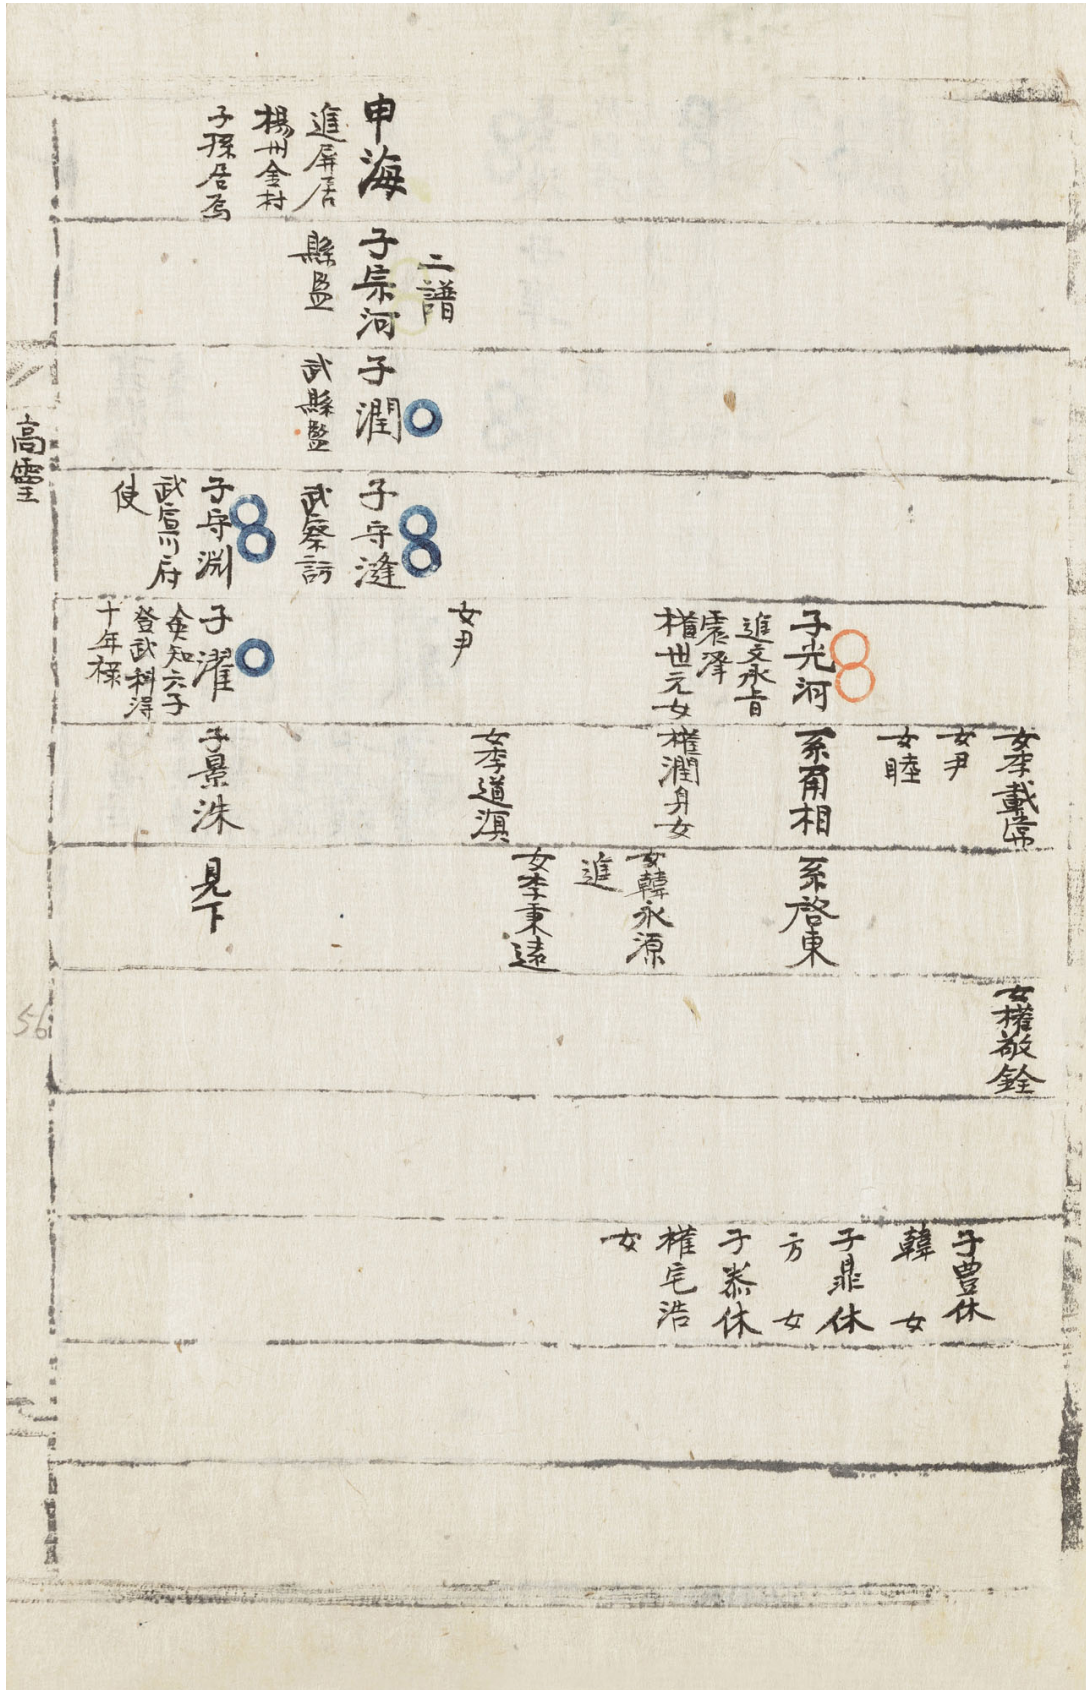 申海
進屛居
楊州金村
子孫居焉
二譜
子宗河
縣監
子潤
武縣監
子守漨
武察訪
子守淵
武宣川府
使
子光河
進文承旨
震澤
楷世元女
女尹
子濯
僉知六子
登武科得
十年祿
女李載常
女尹
女睦
系甫相
權潤身女
女李道溟
子景洙
系啓東
女韓永源
進
女李秉遠
見下
女權敬銓
子豊休
韓女
子鼎休
方女
子泰休
權宅浩
女
高靈
56